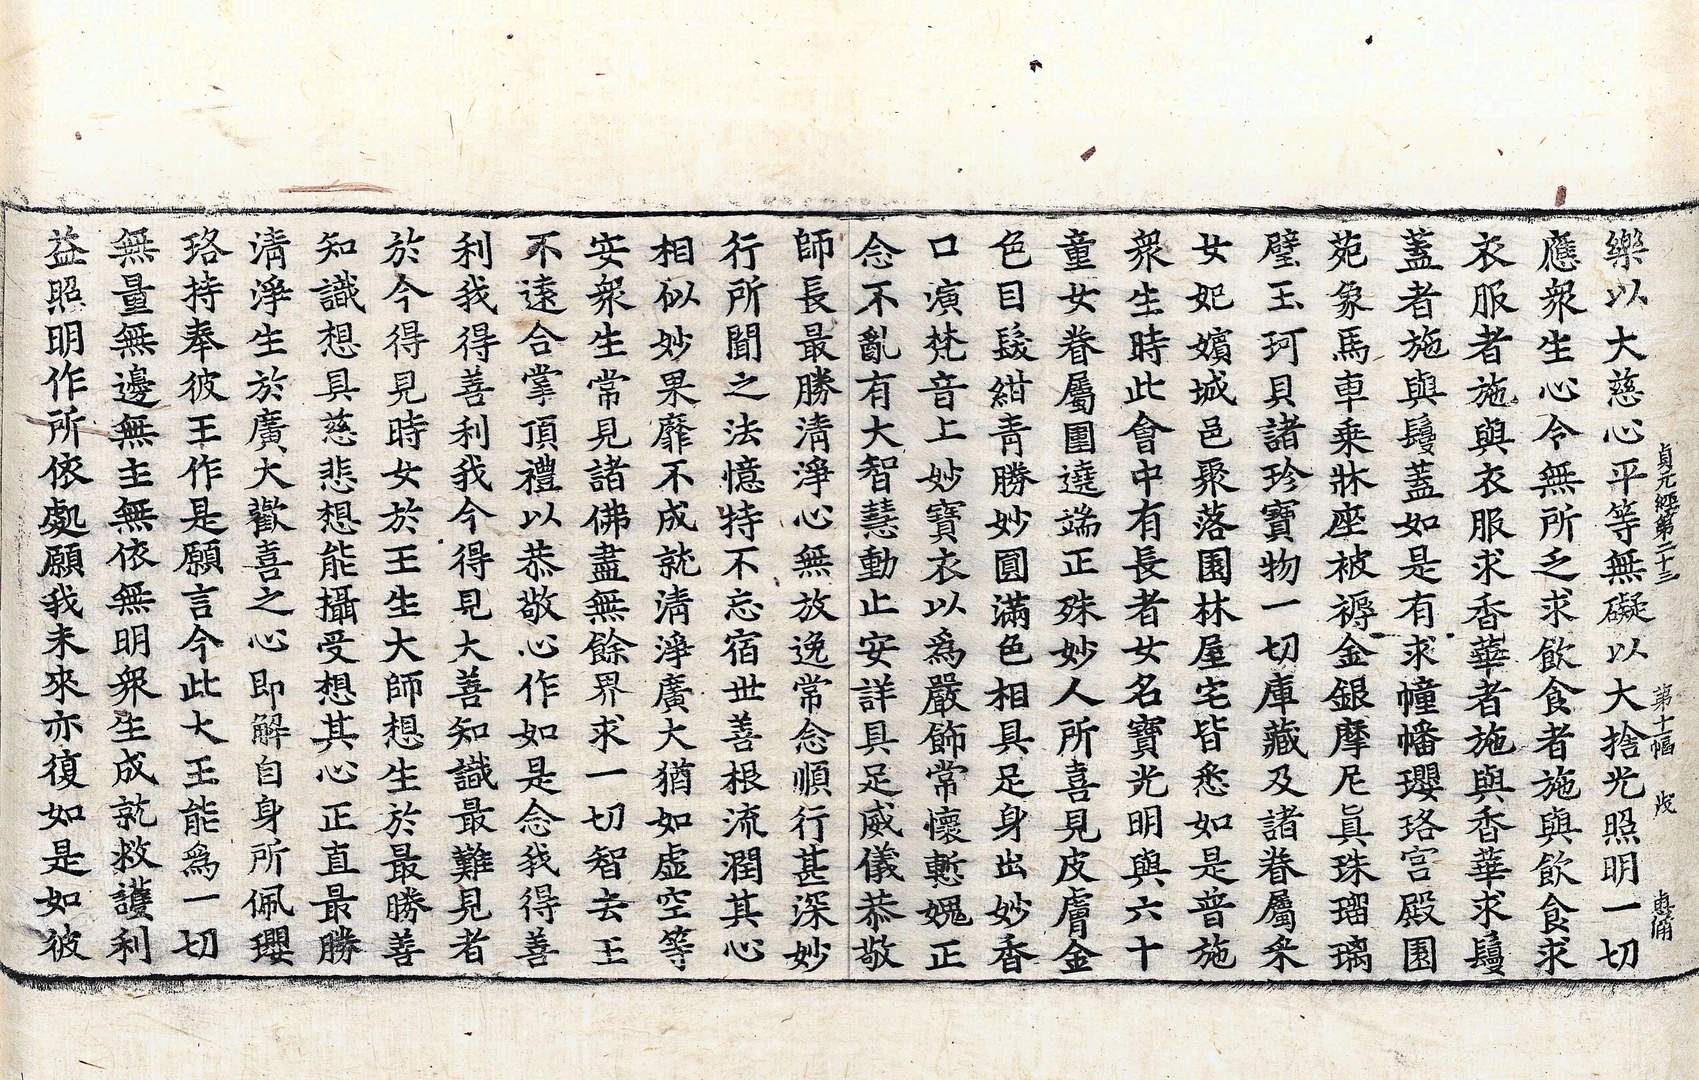 貞元經第二十三 第十幅 歲 惠浦
樂以大慈心平等無礙以大捨光照明一切
應衆生心令無所乏求飲食者施與飲食求
衣服者施與衣服求香華者施與香華求鬘
蓋者施與鬘蓋如是有求幢幡瓔珞宮殿園
苑象馬車乗牀座被褥金銀摩尼眞珠瑠璃
璧玉珂貝諸珍寶物一切庫藏及諸眷屬婇
女妃嬪城邑聚落園林屋宅皆悉如是普施
衆生時此會中有長者女名寶光明與六十
童女眷屬圍遶端正殊妙人所喜見皮膚金
色目髮紺青勝妙圓滿色相具足身出妙香
口演梵音上妙寶衣以爲嚴飾常懷慙愧正
念不亂有大智慧動止安詳具足威儀恭敬
師長最勝淸淨心無放逸常念順行甚深妙
行所聞之法憶持不忘宿世善根流潤其心
相似妙果靡不成就淸淨廣大猶如虛空等
安衆生常見諸佛盡無餘界求一切智去王
不遠合掌頂禮以恭敬心作如是念我得善
利我得善利我今得見大善知識最難見者
於今得見時女於王生大師想生於最勝善
知識想具慈悲想能攝受想其心正直最勝
淸淨生於廣大歡喜之心即解自身所佩瓔
珞持奉彼王作是願言今此大王能爲一切
無量無邊無主無依無明衆生成就救護利
益照明作所依處願我未來亦復如是如彼